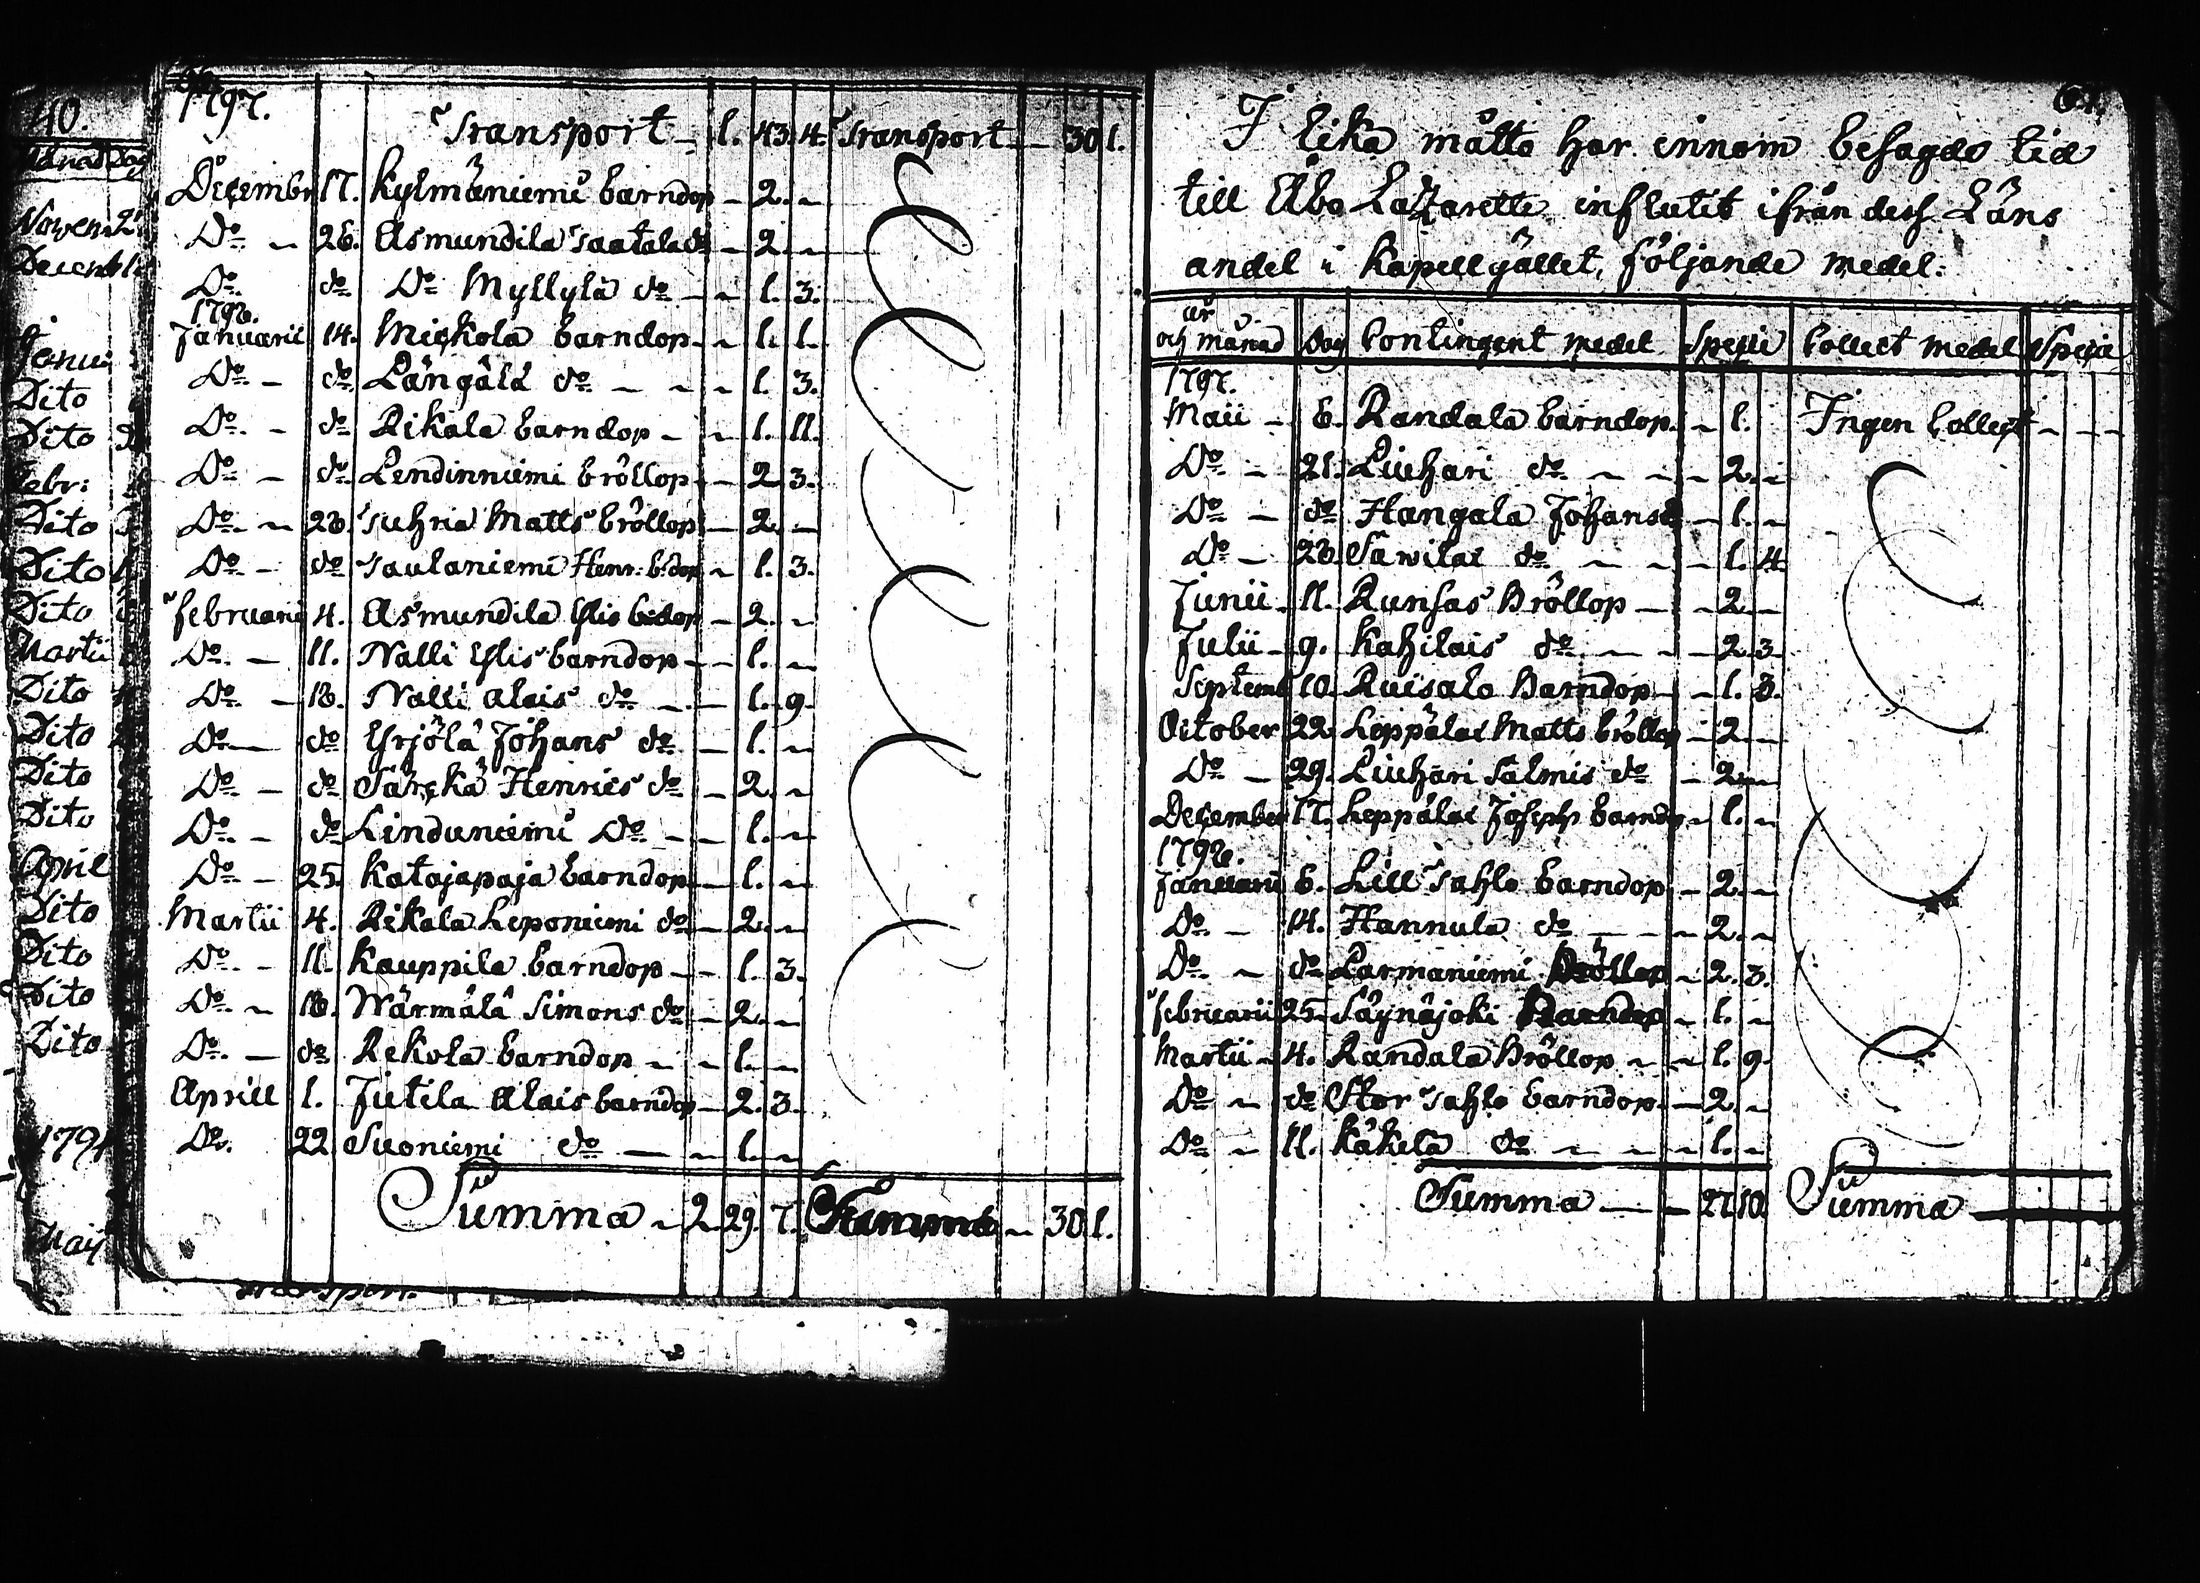 40.
Månad Dag
Novem: 2
Decemb
Janua
Dito
Dito
Febr:
Dito
Dito
Dito
Martii
Dito
Dito
Dito
Dito
April
Dito
Dito
Dito
Dito
1791
Maij
1797.
Transport — 1. 43. 4. Transport — 30 1.
Decembr 17. Kylmäniemi barndop — 2. —
Do — 26. Asmundila Taatala do — 2. —
Do. do Do Myllylä do — — 1. 3.
1798.
Januarii 14. Mickola barndop — — 1. 1.
Do — do Längälä do — — — 1. 3.
Do. — do Rikala barndop — — 1. 11.
Do — do Lendinniemi bröllop — 2. 3.
Do. — 28. Tuhria Matts bröllop — 2. —
Do. — do Taulaniemi Henr: b:dop — 1. 3.
Februarii 4. Asmundila Ylis b:dop — 2. —
Do. — 11. Nalli Ylis barndop — — 1. —
Do. — 18. Nalli Alais do — — 1. 9.
Do. — do Yrjölä Johans do — 1. —
Do. — do Särckä Henrics do — 2. —
Do. — do Linduniemi Do — — 1. —
Do. — 25. Katajapaja barndop — 1. —
Martii 4. Rikala Leponiemi do — 2. —
Do. — 11. Kauppila barndop — — 1. 3.
Do. — 18. Wärmälä Simons do — 2. —
Do. — do Rekola barndop — — 1. —
Aprill 1. Jutila Alais barndop — 2. 3.
Do. 22. Suoniemi do — — 1. —
Summa — 2. 29. 7. Summa — 30 1.
Transport.
61.
I lika måtto har innom besagde tid
till Åbo Lazarette influtit ifrån dess Läns
andel i Kapellgället, följande medel:
år
och månad Dag Contingent medel Specie Collect medel Specie
1797.
Maii — 6. Randala barndop. — 1. Ingen Collect — — —
Do — 21. Liuhari do — — — 2. —
Do — do Hangala Johans do — 1. —
Do — 28. Sawilax do — — — 1. 4.
Junii. 11. Runsas Bröllop — — 2. —
Julii — 9. Kahilais do — — — 2. 3.
Septemb 10. Ruisalo Barndop — — 1. 3.
October 22. Leppälax Matts bröllop — 2. —
Do — 29. Liuhari Salmis do — 2. —
December 17. Leppälax Joseph barndop — 1. —
1798.
Januarii 6. Lill Tahlo barndop — 2. —
Do. — 14. Hannula do — — — 2. —
Do. — do Larmaniemi Bröllop — 2. 3.
Februarii 25. Säynäjoki Barndop — 1. —
Martii — 4. Randala Bröllop — — 1. 9.
Do — do Stor Tahlo barndop. — 2. —
Do — 11. Käkelä do — — — 1. —
Summa — — 27. 10. Summa —